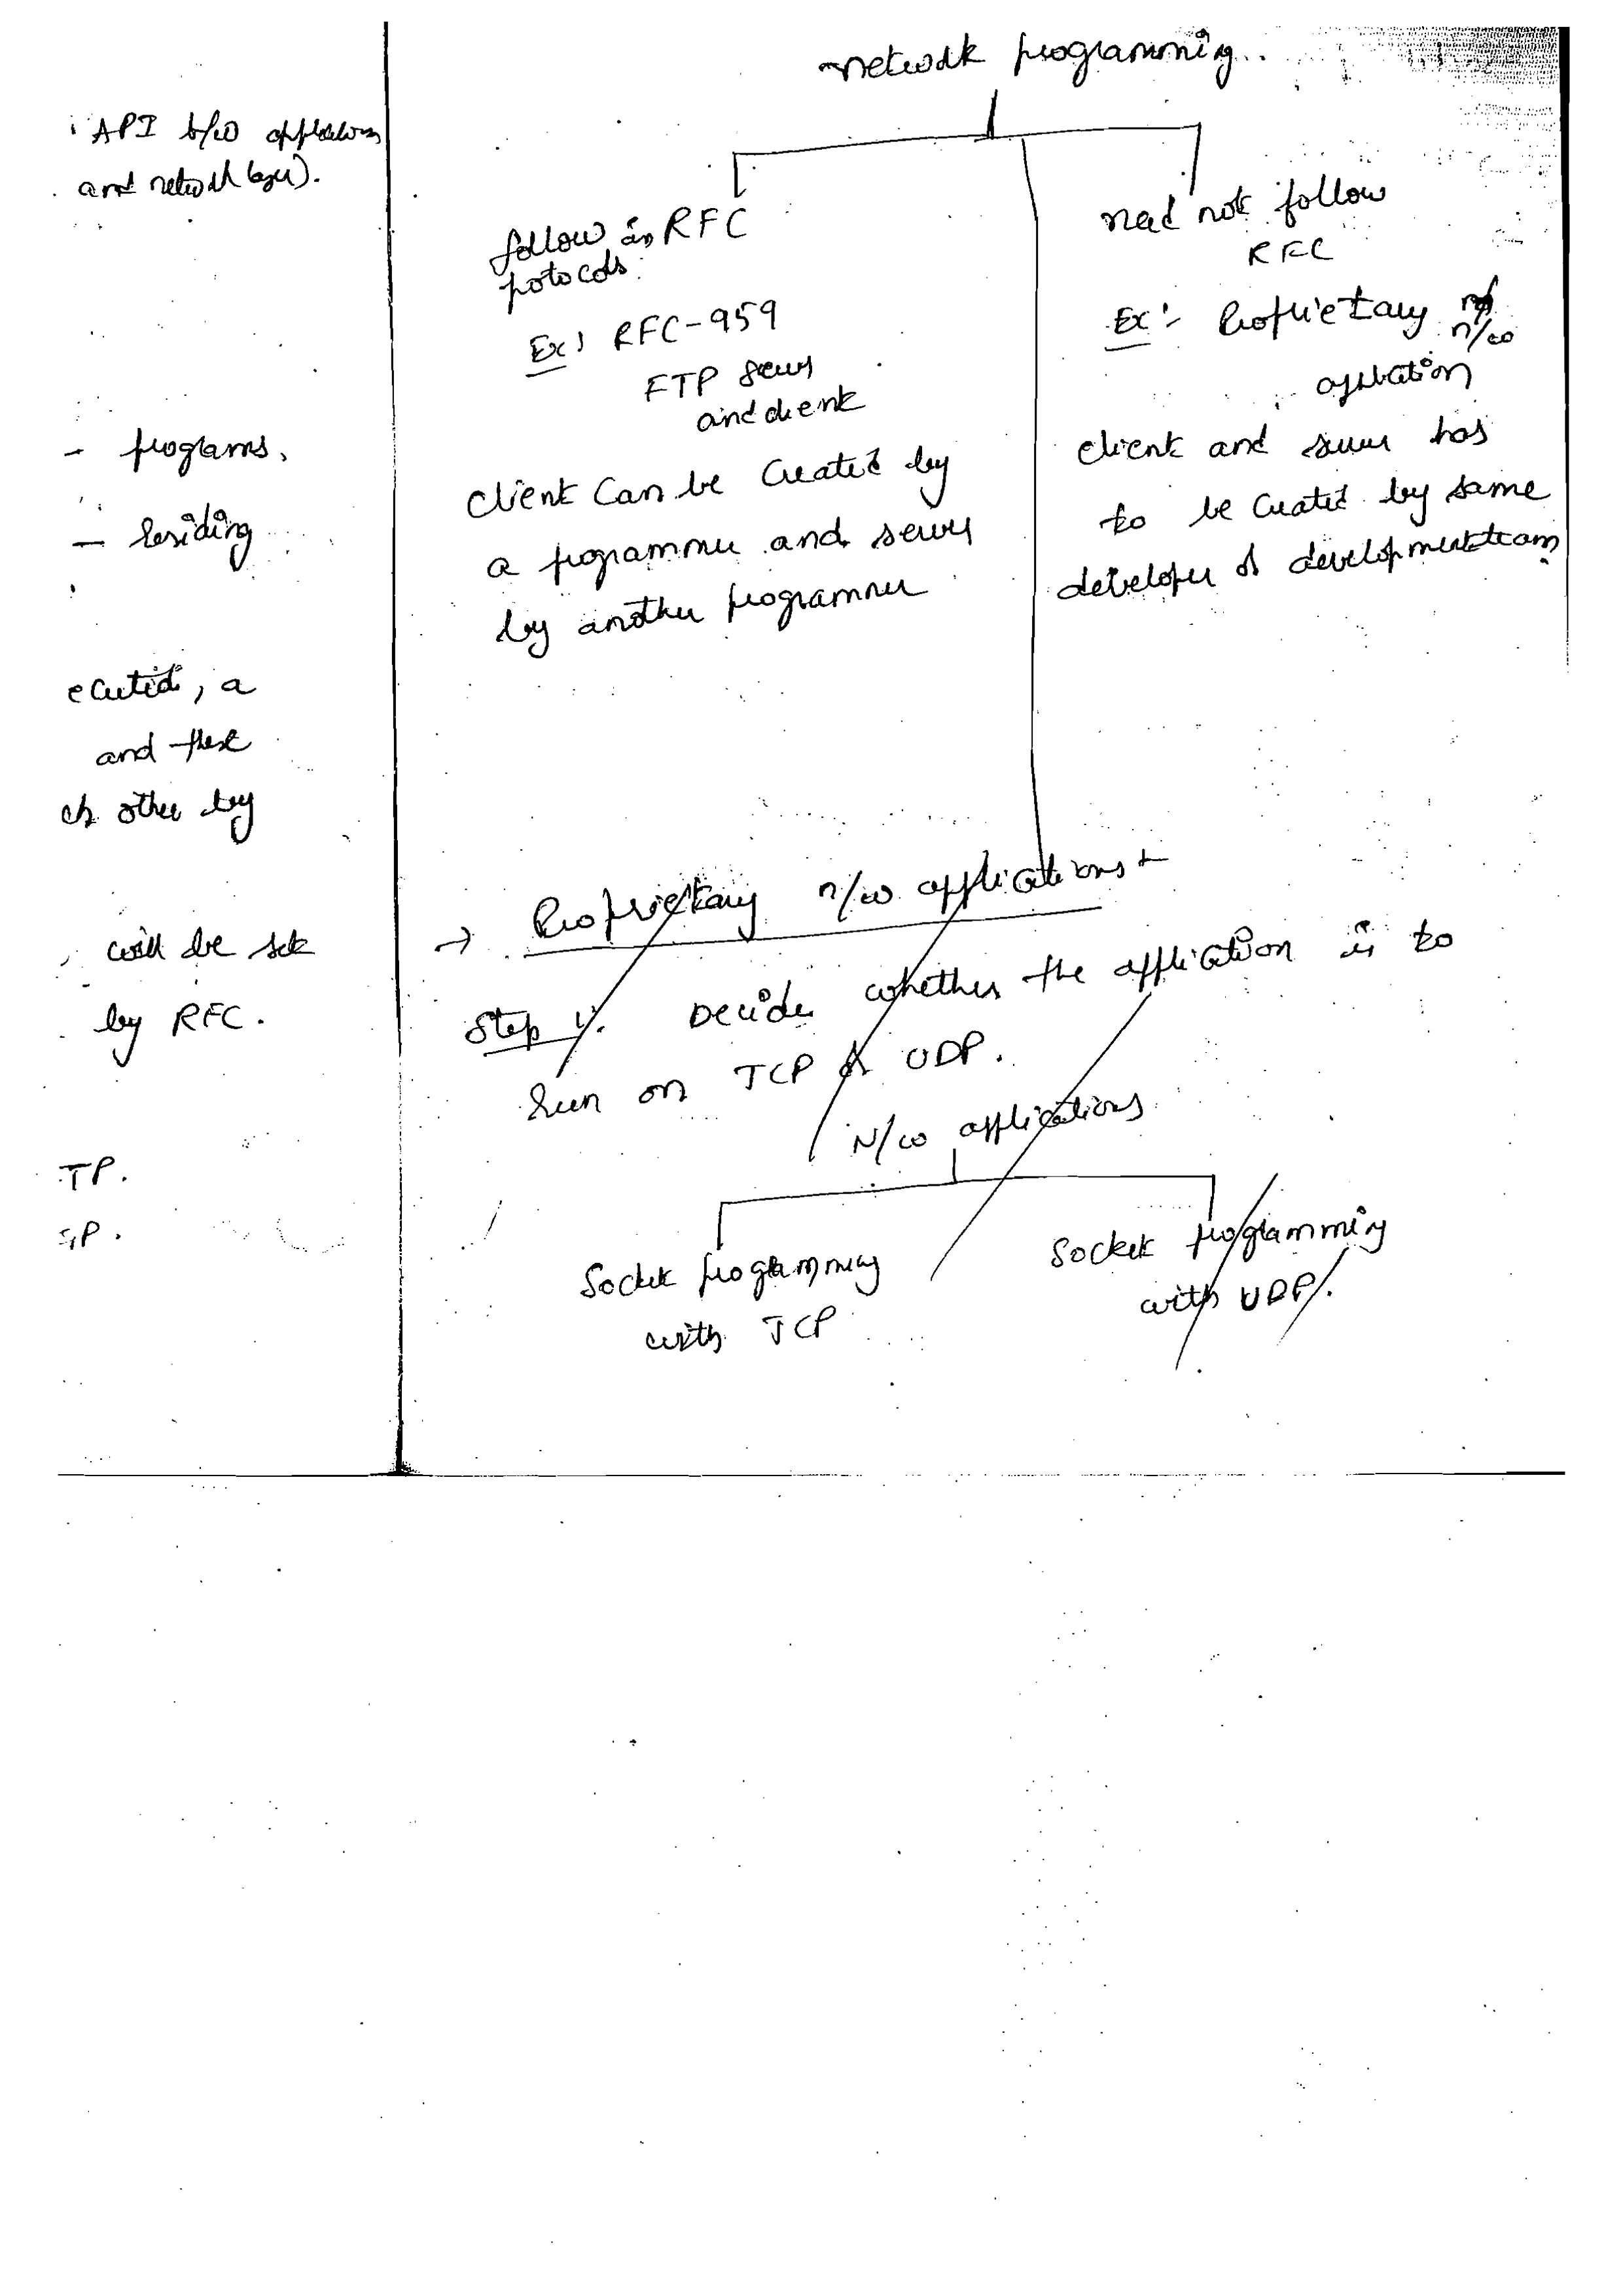 API b/w applications
and network layer).
- programs.
- residing
ecuted, a
and these
ch other by
will be set
by RFC.
TP.
network programming.
follow an RFC
protocols.
Ex: RFC-959
FTP server
and client
client can be created by
a programmer and server
by another programmer
need not follow
RFC
Ex:- Proprietary
n/w
application
client and server has
to be created by same
developer or development team
→ Proprietary n/w applications:-
Step 1: Decide whether the application is to
run on TCP or UDP.
N/w applications
Socket programming
with TCP
Socket programming
with UDP.